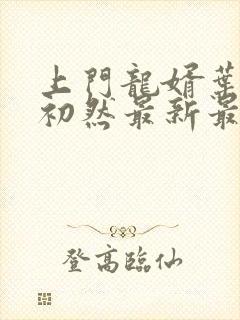 上門龍婿葉
初然最新最
登高臨仙